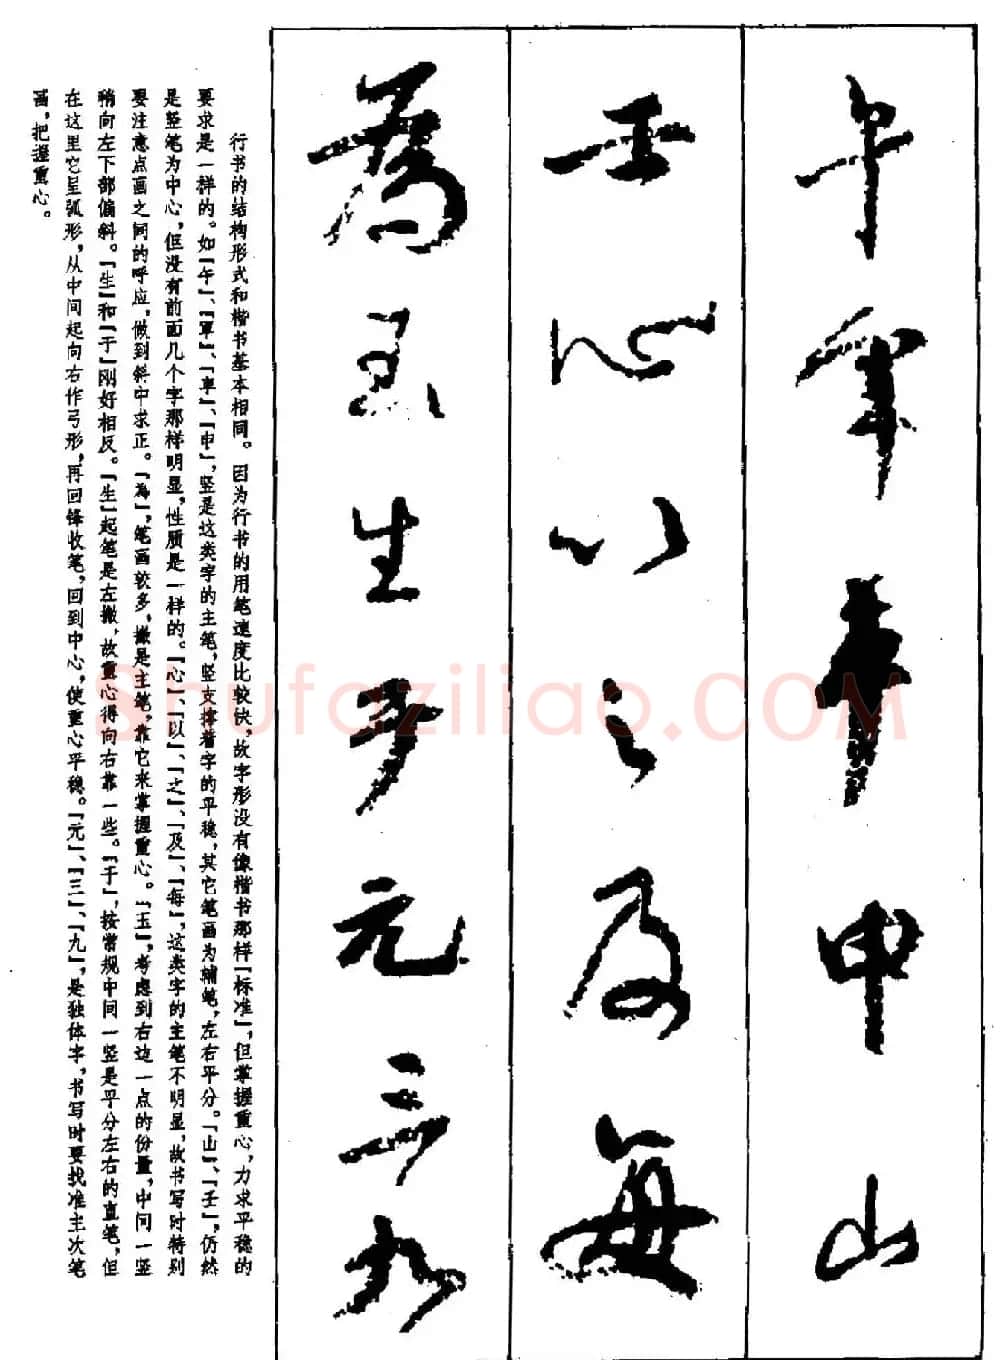 午军车申山
壬心以之及每
為玉生于元三九
行书的结构形式和楷书基本相同。因为行书的用笔速度比较快，故字形没有像楷书那样「标准」，但掌握重心，力求平稳的
要求是一样的。如「午」、「軍」、「車」、「申」，竖是这类字的主笔，竖支撑着字的平稳，其它笔画为辅笔，左右平分。「山」、「壬」，仍然
是竖笔为中心，但没有前面几个字那样明显，性质是一样的。「心」、「以」、「之」、「及」、「每」，这类字的主笔不明显，故书写时特别
要注意点画之间的呼应，做到斜中求正。「為」，笔画较多，撇是主笔，靠它来掌握重心。「玉」，考虑到右边一点的份量，中间一竖
稍向左下部偏斜。「生」和「于」刚好相反。「生」起笔是左撇，故重心得向右靠一些。「于」，按常规中间一竖是平分左右的直笔，但
在这里它呈弧形，从中间起向右作弓形，再回锋收笔，回到中心，使重心平稳。「元」、「三」、「九」，是独体字，书写时要找准主次笔
画，把握重心。
Shufaziliao.COM